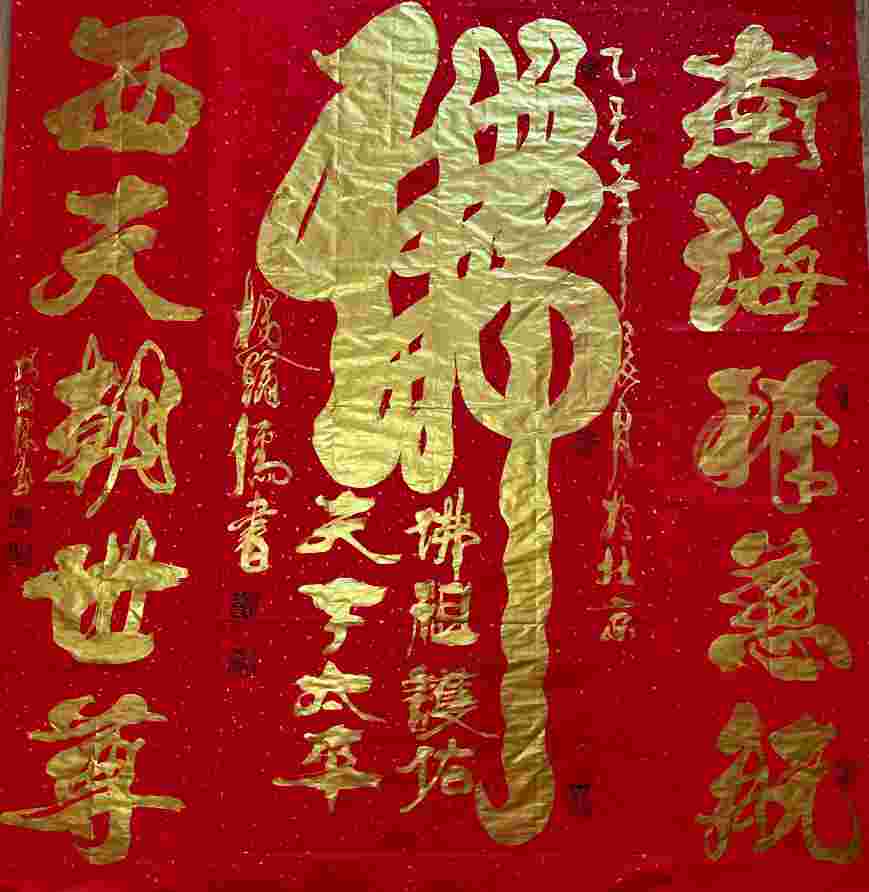 南海拜慈航
乙丑年夏月於北京
佛
佛祖護佑
天下太平
儒書
西天朝世尊